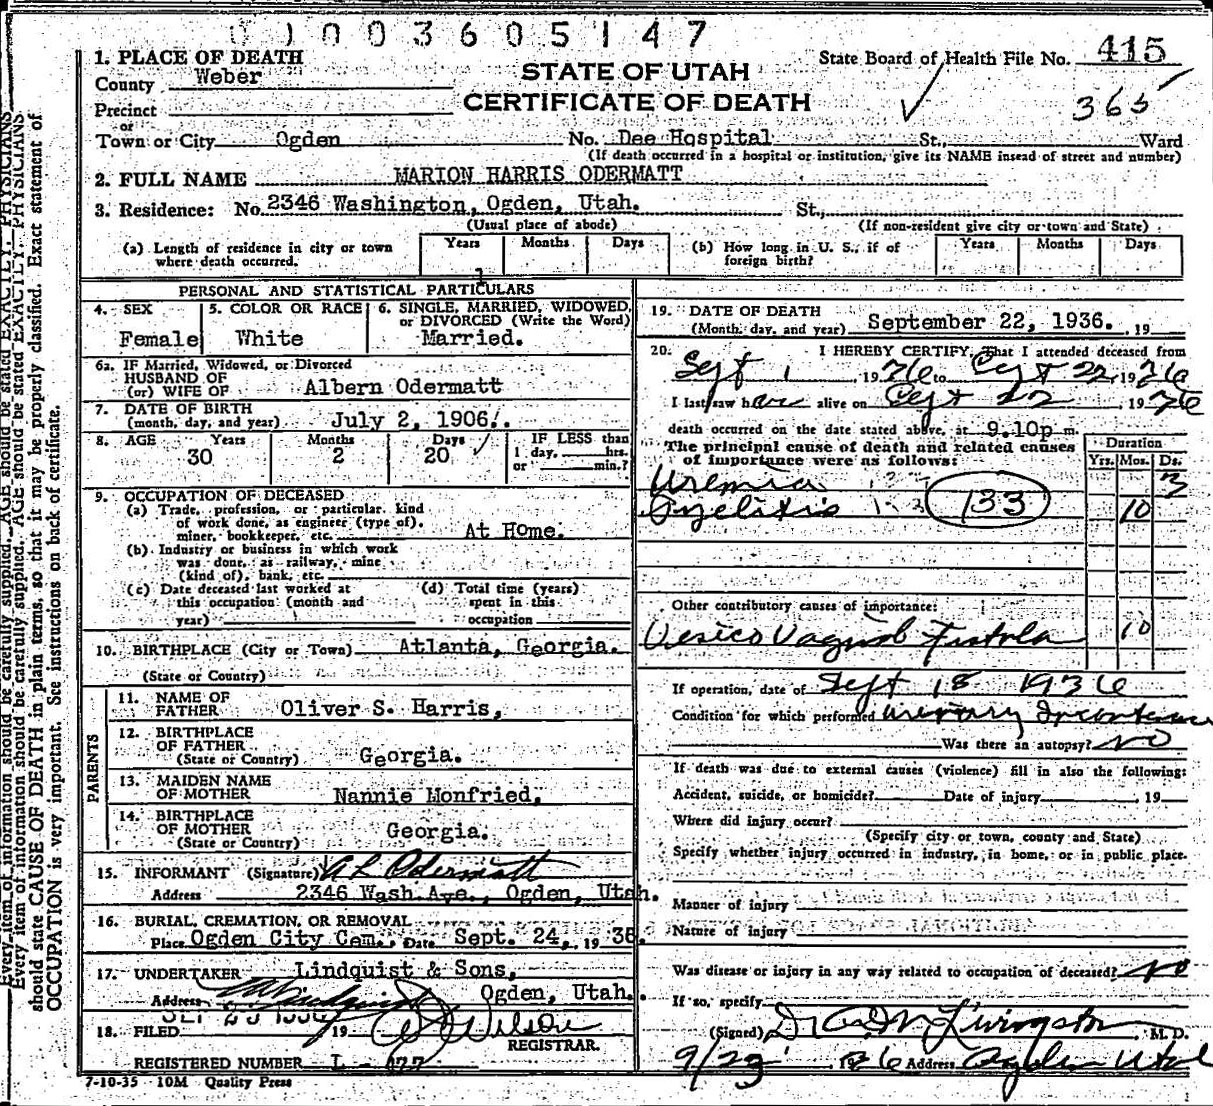 01003605147
1. PLACE OF DEATH
County Weber
STATE OF UTAH
CERTIFICATE OF DEATH
State Board of Health File No. 415
365
Precinct
or
Town or City Ogden No. Dee Hospital St., Ward
(If death occurred in a hospital or institution, give its NAME insead of street and number)
2. FULL NAME MARION HARRIS ODERMATT
3. Residence: No. 2346 Washington, Ogden, Utah. St.,
(Usual place of abode) (If non-resident give city or town and State)
(a) Length of residence in city or town where death occurred. Years Months Days
(b) How long in U. S., if of foreign birth? Years Months Days
PERSONAL AND STATISTICAL PARTICULARS
4. SEX
Female
5. COLOR OR RACE
White
6. SINGLE, MARRIED, WIDOWED,
or DIVORCED (Write the Word)
Married.
6a. IF Married, Widowed, or Divorced
HUSBAND OF
(or) WIFE OF Albern Odermatt
7. DATE OF BIRTH
(month, day, and year) July 2, 1906.
8. AGE Years Months Days IF LESS than
30 2 20 1 day, hrs.
or min.?
9. OCCUPATION OF DECEASED
(a) Trade, profession, or particular kind
of work done, as engineer (type of).
miner, bookkeeper, etc. At Home.
(b) Industry or business in which work
was done, as railway, mine
(kind of), bank, etc.
(c) Date deceased last worked at
this occupation (month and
year)
(d) Total time (years)
spent in this
occupation
10. BIRTHPLACE (City or Town) Atlanta, Georgia.
(State or Country)
PARENTS
11. NAME OF
FATHER Oliver S. Harris,
12. BIRTHPLACE
OF FATHER
(State or Country) Georgia.
13. MAIDEN NAME
OF MOTHER Nannie Monfried,
14. BIRTHPLACE
OF MOTHER Georgia.
(State or Country)
15. INFORMANT (Signature) A L Odermatt
Address 2346 Wash.Ave., Ogden, Utah.
16. BURIAL, CREMATION, OR REMOVAL
Place Ogden City Cem. Date Sept. 24, 1936.
17. UNDERTAKER Lindquist & Sons,
Address Ogden, Utah.
18. FILED 19
Wilson
REGISTRAR.
REGISTERED NUMBER
7-10-35 10M Quality Press
19. DATE OF DEATH
(Month, day, and year) September 22, 1936. , 19
20. I HEREBY CERTIFY, That I attended deceased from
Sept 1, 1936 to Sept 22, 1936
I last saw her alive on Sept 22 1936
death occurred on the date stated above, at 9.10p m.
The principal cause of death and related causes
of importance were as follows:
Duration
Yrs. Mos. Ds.
Uremia 3
Pyelitis 133 10
Other contributory causes of importance:
Vesico Vaginal Fistula 10
If operation, date of Sept 18 1936
Condition for which performed Urinary Incontinence
Was there an autopsy? No
If death was due to external causes (violence) fill in also the following:
Accident, suicide, or homicide? Date of injury , 19
Where did injury occur?
(Specify city or town, county and State)
Specify whether injury occurred in industry, in home, or in public place.
Manner of injury
Nature of injury
Was disease or injury in any way related to occupation of deceased? No
If so, specify
(Signed) Livingston M. D.
9/23 1936 Address Ogden Utah
Every item of information should be carefully supplied. AGE should be stated EXACTLY. PHYSICIANS
should state CAUSE OF DEATH in plain terms, so that it may be properly classified. Exact statement of
OCCUPATION is very important. See instructions on back of certificate.